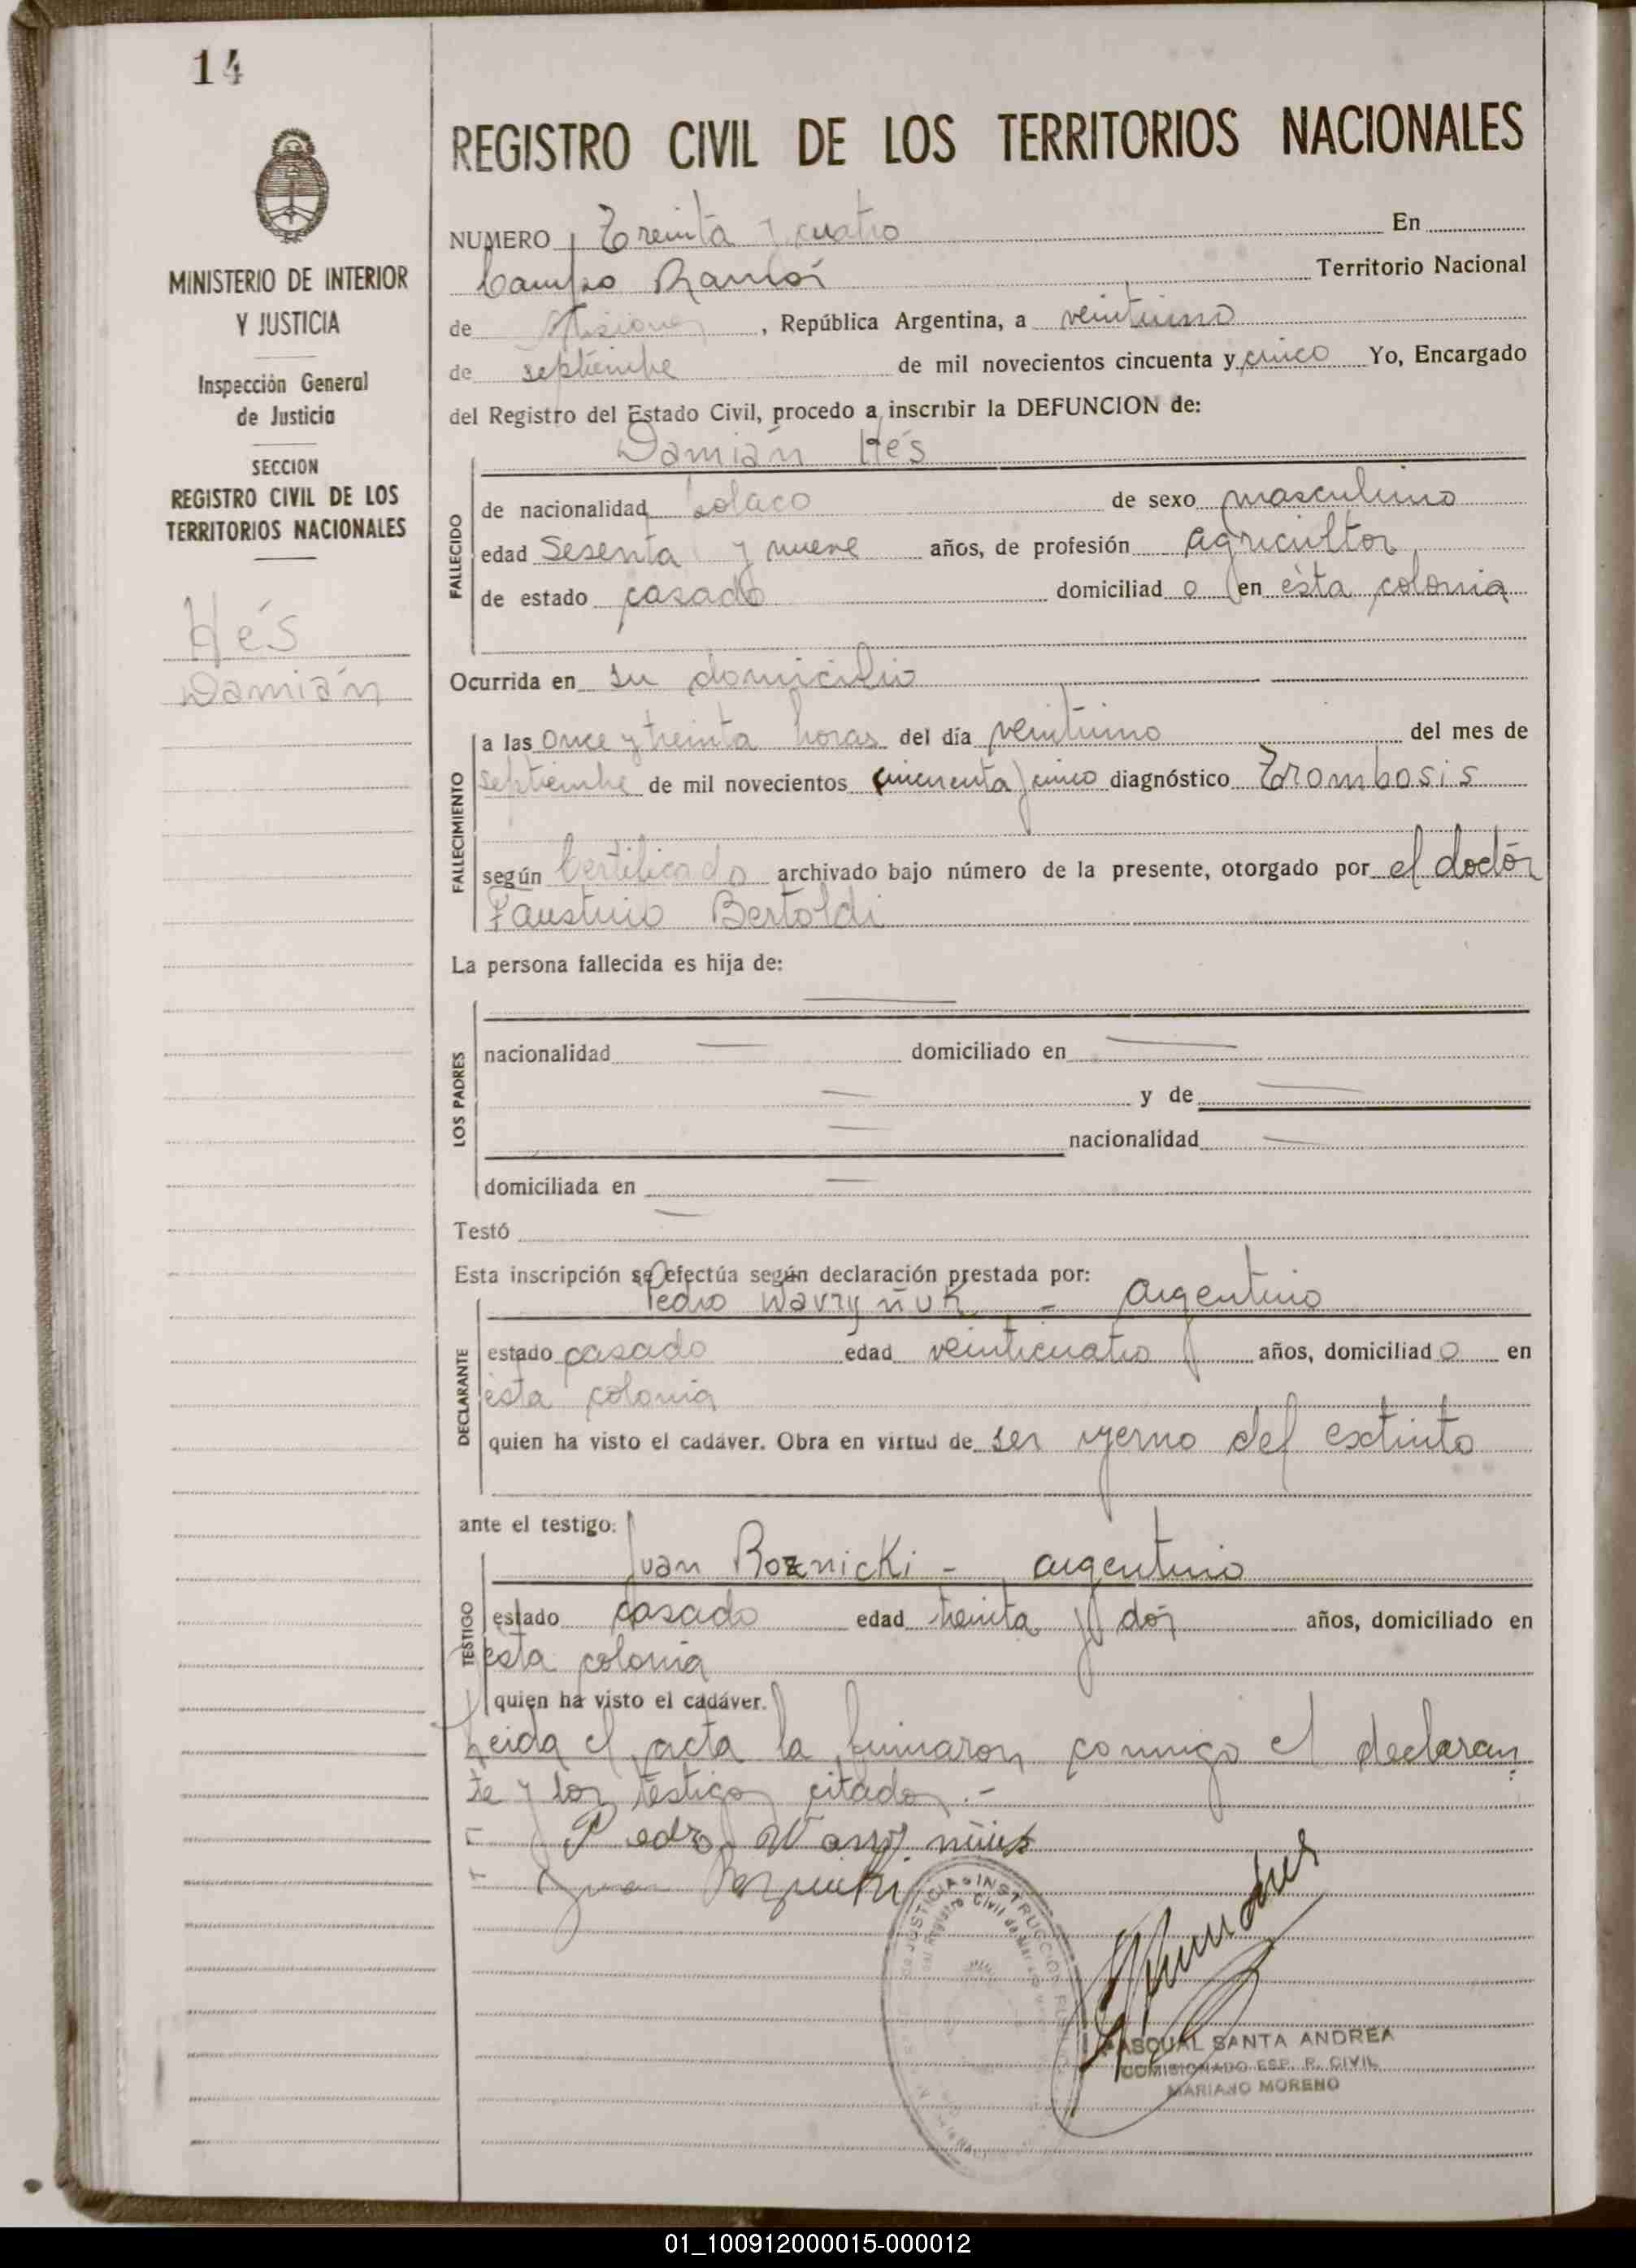 14
REGISTRO CIVIL DE LOS TERRITORIOS NACIONALES
MINISTERIO DE INTERIOR
Y JUSTICIA
Inspección General
de Justicia
SECCION
REGISTRO CIVIL DE LOS
TERRITORIOS NACIONALES
Hés
Damián
NUMERO Treinta y cuatro En
Campo Ramón Territorio Nacional
de Misiones, República Argentina, a veintiuno
de septiembre de mil novecientos cincuenta y cinco Yo, Encargado
del Registro del Estado Civil, procedo a inscribir la DEFUNCION de:
Damián Hés
FALLECIDO
de nacionalidad polaco de sexo masculino
edad Sesenta y nueve años, de profesión agricultor
de estado casado domiciliad o en ésta colonia
Ocurrida en su domicilio
FALLECIMIENTO
a las once y treinta horas del día veintiuno del mes de
septiembre de mil novecientos cincuenta y cinco diagnóstico Trombosis
según Certificado archivado bajo número de la presente, otorgado por el doctor
Faustino Bertoldi
La persona fallecida es hija de:
LOS PADRES
nacionalidad domiciliado en
y de
nacionalidad
domiciliada en
Testó
Esta inscripción se efectúa según declaración prestada por:
Pedro Wavryñuk - argentino
DECLARANTE
estado casado edad veinticuatro años, domiciliad o en
ésta colonia
quien ha visto el cadáver. Obra en virtud de ser yerno del extinto
ante el testigo:
Juan Roznicki - argentino
TESTIGO
estado casado edad treinta y dos años, domiciliado en
ésta colonia
quien ha visto el cadáver.
Leida el acta la firmaron conmigo el declaran
te y los testigos citados.-
Pedro
Juan Roznicki
JUSTICIA E INSTRUCCION
Registro Civil de
PASCUAL SANTA ANDREA
COMISIONADO ESP. R. CIVIL
MARIANO MORENO
01_100912000015-000012